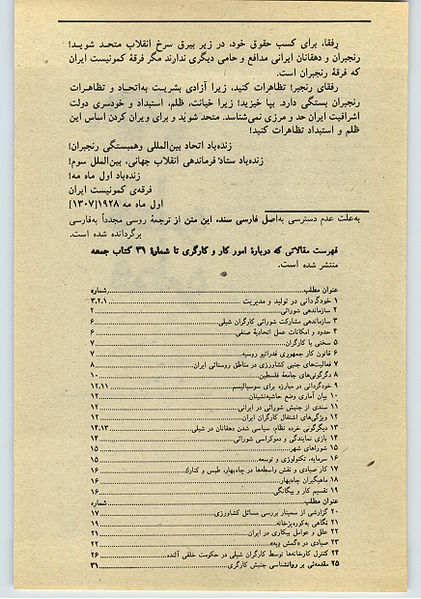 رفقا، برای کسب حقوق خود، در زیر بیرق سرخ انقلاب متحد شوید!
رنجبران و دهقانان ایرانی مدافع و حامی دیگری ندارند مگر فرقهٔ کمونیست ایران
که فرقهٔ رنجبران است.
رفقای رنجبر! تظاهرات کنید، زیرا آزادی بشریت به‌اتحاد و تظاهرات
رنجبران بستگی دارد. بپا خیزید! زیرا خیانت، ظلم، استبداد و خودسری دولت
اشرافیت ایران حد و مرزی نمی‌شناسد. متحد شوید و برای ویران کردن اساس این
ظلم و استبداد تظاهرات کنید!
زنده‌باد اتحاد بین‌المللی وهمبستگی رنجبران!
زنده‌باد ستاد فرماندهی انقلاب جهانی، بین‌الملل سوم!
زنده‌باد اول ماه مه!
فرقه‌ی کمونیست ایران
اول ماه مه ۱۹۲۸ [۱۳۰۷]
به‌علت عدم دسترسی به‌اصل فارسی سند، این متن از ترجمهٔ روسی مجدداً به‌فارسی
برگردانده شده است.
فهرست مقالاتی که دربارهٔ امور کار و کارگری تا شمارهٔ ۳۱ کتاب جمعه
منتشر شده است.
عنوان مطلب شماره
۱ خودگردانی در تولید و مدیریت ۳،۲،۱
۲ سازماندهی شورائی ۲
۳ سازماندهی مشارکت شورائی کارگران شیلی ۶
۴ حدود و امکانات عمل اتحادیهٔ صنفی ۶
۵ سخنی با کارگران ۷
۶ قانون کار جمهوری فدراتیو روسیه ۷
۷ فعالیت‌های جنبی کشاورزی در مناطق روستائی ایران ۸
۸ دگرگونی‌های جامعهٔ فلسطین ۱۰
۹ خودگردانی در مبارزه برای سوسیالیسم ۱۲،۱۱
۱۰ بیان آماری وضع حاشیه‌نشینان ۱۲
۱۱ سندی از جنبش شورائی در ایران ۱۲
۱۲ ویژگی‌های اشتغال کارگران ایران ۱۲
۱۳ دیگرگونی خرده نظام، سیاسی شدن دهقانان در شیلی ۱۴،۱۳
۱۴ بازی نمایندگی و دموکراسی شورائی ۱۴
۱۵ شوراهای شهر ۱۵
۱۶ سرمایه، تکنولوژی و توسعه ۱۵
۱۷ کار صیادی و نقش واسطه‌ها در چاه‌بهار، طیس و کنارک ۱۶
۱۸ ماهیگیران چاه‌بهار ۱۶
۱۹ تقسیم کار و بیگانگی ۱۶
عنوان مطلب شماره
۲۰ گزارشی از سمینار بررسی مسائل کشاورزی ۱۷
۲۱ نگاهی به‌کوره‌پزخانه ۱۹
۲۲ علل و عوامل بیکاری در ایران ۲۱
۲۳ صیادی در «کمش دپه» ۲۲
۲۴ کنترل کارخانه‌ها توسط کارگران شیلی در حکومت خلقی آلنده ۲۶
۲۵ مقدمه‌ئی بر روانشناسی جنبش کارگری ۳۱